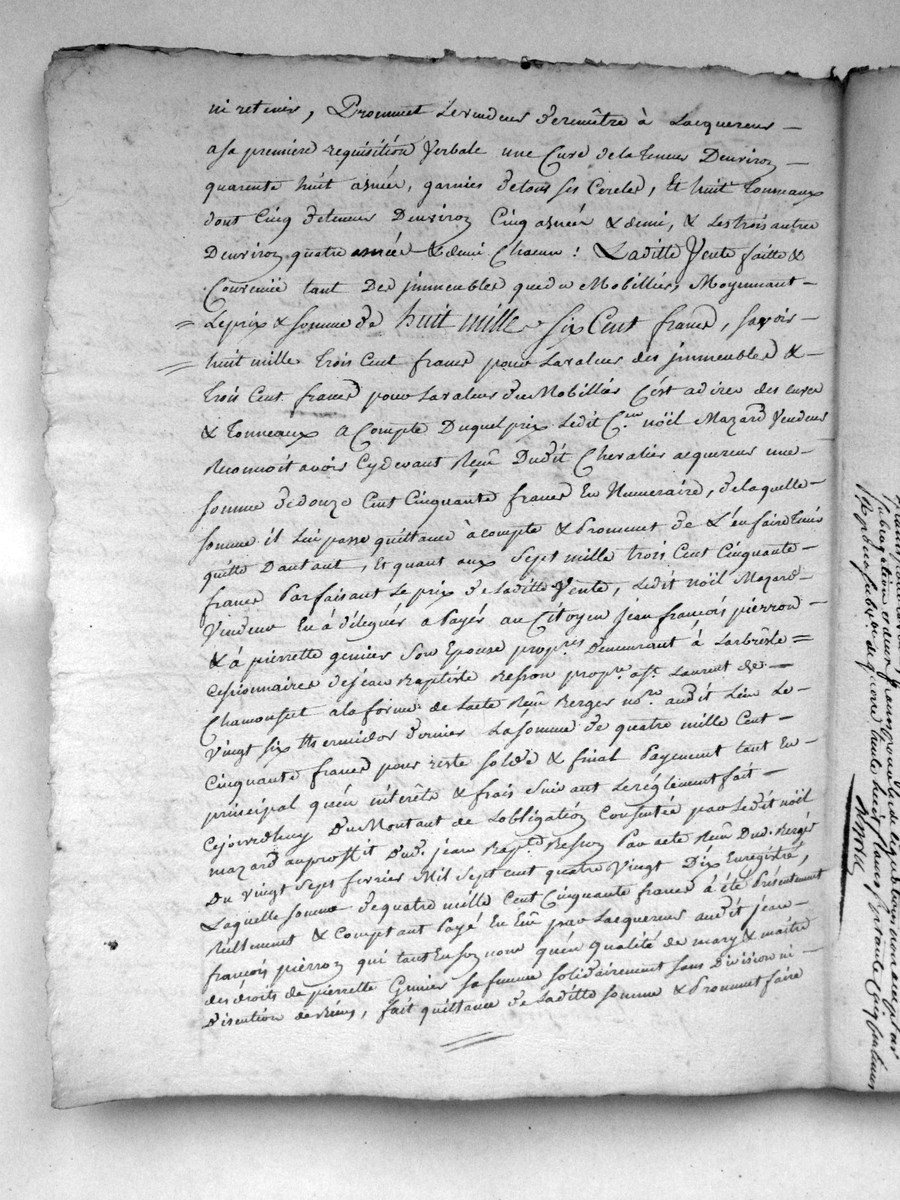 ni retenir, Prommet Le vendeur de remêtre à Lacquereur –
a sa première requisition Verbale une Cuve de la teneur Denviron –
quarente huit asnée, garnies de tous ses Cercles, Et huit Tonneaux
dont Cinq de teneur Denviron Cinq asnée & demi, & Les trois autre
Denviron quatre asnée & demi Chacun : Laditte Vente faitte &
Convenüe tant Des jmmeubles que du Mobillier, Moyennant –
Le prix & somme de huit mille six Cent franc, savoir –
huit mille trois Cent franc pour La valeur des jmmeubles & –
trois Cent franc pour La valeur du Mobillier C'est a dire des cuves
& Tonneaux A Compte Duquel prix Ledit C.en noël Mazard Vendeur
Reconnoit avoir Cy devant Reçu Dudit Chevalier acquereur une –
somme de douze Cent Cinquante franc En Numeraire, de laquelle –
somme il Lui passe quittance à compte & Prommet de L'en faire tenir
quitte Dautant, Et quant aux Sept mille trois Cent Cinquante –
franc Parfaisant Le prix de laditte Vente, Ledit Noël Mazard –
Vendeur En à délegué à Payer au Citoyen Jean françois pierron –
& à pierrette genier Son Epouse prop.res Demeurant à Larbrêsle =
Cessionnaires de jean Baptiste Besson prop.re à St. Laurent de –
Chamousset a la forme de Lacte Reçu Berger no.re audit Lieu Le –
Vingt six thermidor dernier La somme de quatre mille Cent –
Cinquante franc pour reste solde & final Payement tant En –
principal qu'en interêts & frais Suivant Le règlement fait –
Cejourdhuy Du Montant de Lobligation Consentie par Ledit noël
mazard au proffit Dud. jean Bapt.e Besson Par acte Reçu Dud. Berger
Du vingt Sept fevrier Mil Sept cent quatre Vingt Dix Enregistré,
Laquelle somme de quatre mille Cent Cinquante franc à été Présentement
Réellement & Comptant Payé par Lacquereur audit jean –
françois pierron qui tant En son nom qu'en qualité de mary & maitre
des droits de pierrette Genier sa femme solidairement sans Division ni –
Discution de biens, fait quittance de Laditte somme & Prommet faire